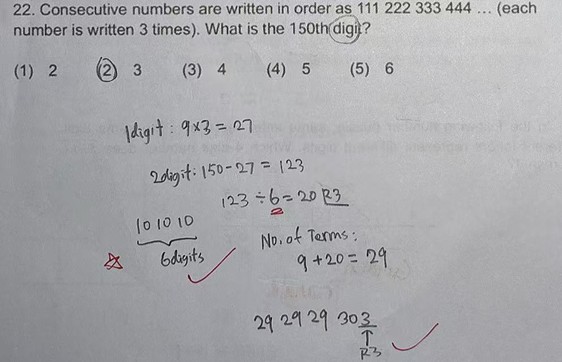 22. Consecutive numbers are written in order as 111 222 333 444 ... (each
number is written 3 times). What is the 150th digit?
(1) 2 (2) 3 (3) 4 (4) 5 (5) 6
1digit : 9×3 = 27
2digit: 150-27 = 123
123 ÷ 6 = 20 R3
10 10 10
6digits
No. of Terms:
9 + 20 = 29
29 29 29 303
R3